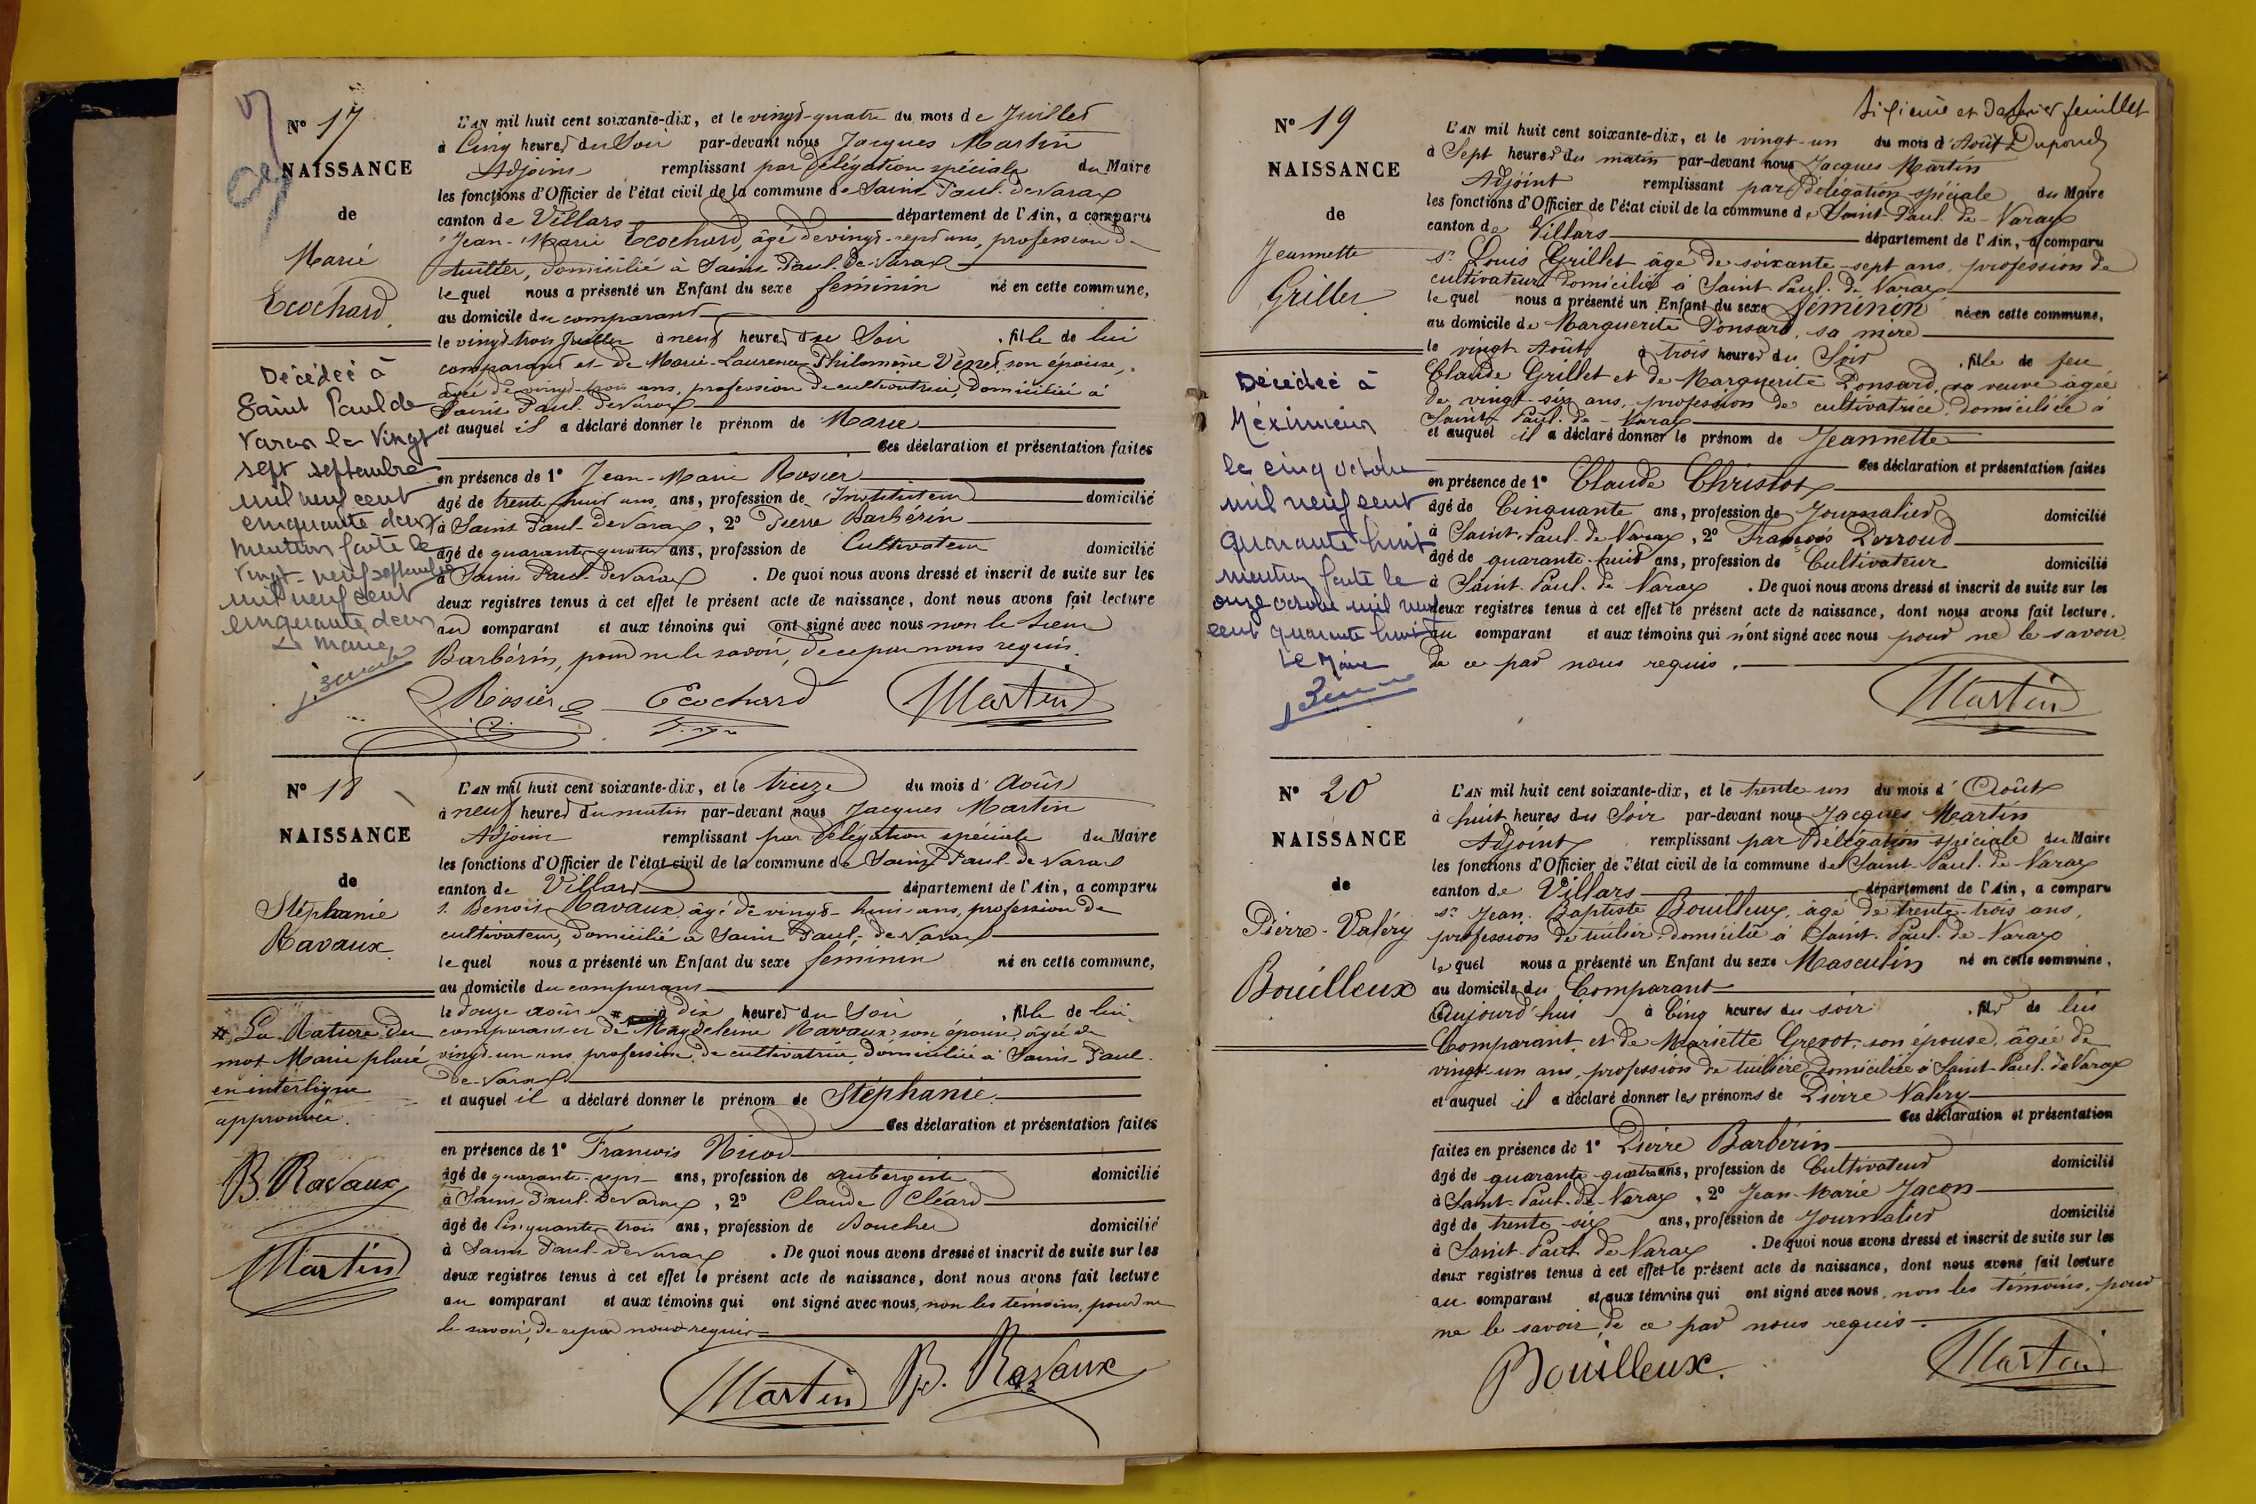 N° 17
NAISSANCE
de
Marie
Ecochard
Décédée à
Saint Paul de
Varax le Vingt
sept septembre
mil neuf cent
cinquante deux
mention faite le
vingt-neuf septembre
mil neuf cent
cinquante deux
Le Maire
L'AN mil huit cent soixante-dix, et le vingt-quatre du mois de Juillet
à Cinq heures du Soir par-devant nous Jacques Martin
Adjoint remplissant par délégation spéciale du Maire
les fonctions d'Officier de l'état civil de la commune de Saint Paul-de Varax
canton de Villars département de l'Ain, a comparu
Jean-Marie Ecochard, âgé de vingt-sept ans, profession de
tuilier, domicilié à Saint Paul-de-Varax
le quel nous a présenté un Enfant du sexe feminin né en cette commune,
au domicile du comparant
le vingt trois Juillet à neuf heures du Soir , fille de lui
comparant et de Marie-Laurence Philomène son épouse,
âgée de vingt-trois ans, profession de cultivatrice, domiciliée à
Saint Paul-de Varax
et auquel il a déclaré donner le prénom de Marie
Ces déclaration et présentation faites
en présence de 1° Jean-Marie Rosier
âgé de trente huit ans ans, profession de Instituteur domicilié
à Saint Paul-de Varax, 2° Pierre Barbérin
âgé de quarante quatre ans, profession de Cultivateur domicilié
à Saint Paul-de Varax . De quoi nous avons dressé et inscrit de suite sur les
deux registres tenus à cet effet le présent acte de naissance, dont nous avons fait lecture
au comparant et aux témoins qui ont signé avec nous non le Sieur
Barbérin, pour ne le savoir, de ce par nous requis.
Rosier Ecochard Martin
N° 18
NAISSANCE
de
Stéphanie
Ravaux
# La Rature du
mot Marie placé
en interligne
approuvée.
B. Ravaux
Martin
L'AN mil huit cent soixante-dix, et le treize du mois d'Août
à neuf heures du matin par-devant nous Jacques Martin
Adjoint remplissant par délégation spéciale du Maire
les fonctions d'Officier de l'état civil de la commune de Saint Paul-de Varax
canton de Villars département de l'Ain, a comparu
s. Benoit Ravaux, âgé de vingt-huit ans, profession de
cultivateur, domicilié à Saint Paul-de Varax
le quel nous a présenté un Enfant du sexe feminin né en cette commune,
au domicile du comparant
le douze août # à dix heures du Soir , fille de lui
comparant et de Magdeleine Ravaux son épouse, âgée de
vingt-un ans, profession de cultivatrice, domiciliée à Saint Paul-
de-Varax
et auquel il a déclaré donner le prénom de Stéphanie
Ces déclaration et présentation faites
en présence de 1° François Nicod
âgé de quarante-sept ans, profession de aubergiste domicilié
à Saint Paul-de Varax, 2° Claude Cléard
âgé de Cinquante trois ans, profession de Boucher domicilié
à Saint Paul-de Varax . De quoi nous avons dressé et inscrit de suite sur les
deux registres tenus à cet effet le présent acte de naissance, dont nous avons fait lecture
au comparant et aux témoins qui ont signé avec nous, non les témoins, pour ne
le savoir, de ce par nous requis
Martin B. Ravaux
Sixième et dernier feuillet
Dupond
N° 19
NAISSANCE
de
Jeannette
Grillet
Décédée à
Méximieux
le cinq octobre
mil neuf cent
quarante-huit
mention faite le
onze octobre mil neuf
cent quarante huit
Le Maire
L'AN mil huit cent soixante-dix, et le vingt-un du mois d'Août
à Sept heures du matin par-devant nous Jacques Martin
Adjoint remplissant par délégation spéciale du Maire
les fonctions d'Officier de l'état civil de la commune de Saint-Paul-de-Varax
canton de Villars département de l'Ain, a comparu
sr Louis Grillet âgé de soixante-sept ans, profession de
cultivateur domicilié à Saint-Paul-de Varax
le quel nous a présenté un Enfant du sexe féminin né en cette commune,
au domicile de Marguerite Ponsard, sa mère
le vingt Août à trois heures du Soir , fille de feu
Claude Grillet et de Marguerite Ponsard, sa veuve âgée
de vingt-six ans, profession de cultivatrice, domiciliée à
Saint-Paul-de-Varax
et auquel il a déclaré donner le prénom de Jeannette
Ces déclaration et présentation faites
en présence de 1° Claude Christot
âgé de Cinquante ans, profession de Journalier domicilié
à Saint-Paul-de-Varax, 2° François Perroud
âgé de quarante-huit ans, profession de Cultivateur domicilié
à Saint-Paul-de Varax . De quoi nous avons dressé et inscrit de suite sur les
deux registres tenus à cet effet le présent acte de naissance, dont nous avons fait lecture.
au comparant et aux témoins qui n'ont signé avec nous pour ne le savoir
de ce par nous requis.
Martin
N° 20
NAISSANCE
de
Pierre-Valéry
Bouilleux
L'AN mil huit cent soixante-dix, et le trente-un du mois d'Août
à huit heures du Soir par-devant nous Jacques Martin
Adjoint remplissant par Délégation spéciale du Maire
les fonctions d'Officier de l'état civil de la commune de Saint-Paul-de Varax
canton de Villars département de l'Ain, a comparu
sr Jean-Baptiste Bouilleux, âgé de trente-trois ans,
profession de tuilier domicilié à Saint-Paul-de-Varax
le quel nous a présenté un Enfant du sexe Masculin né en cette commune,
au domicile du Comparant
Aujourd'hui à Cinq heures du soir , fils de lui
Comparant, et de Mariette Grevot, son épouse, âgée de
vingt-un ans, profession de tuilière domiciliée à Saint-Paul-de Varax
et auquel il a déclaré donner les prénoms de Pierre Valéry
Ces déclaration et présentation
faites en présence de 1° Pierre Barbérin
âgé de quarante-quatre ans, profession de Cultivateur domicilié
à Saint-Paul-de-Varax, 2° Jean-Marie Jacon
âgé de trente-six ans, profession de Journalier domicilié
à Saint-Paul de Varax . De quoi nous avons dressé et inscrit de suite sur les
deux registres tenus à cet effet le présent acte de naissance, dont nous avons fait lecture
au comparant et aux témoins qui ont signé avec nous, non les témoins, pour
ne le savoir, de ce par nous requis.
Bouilleux Martin